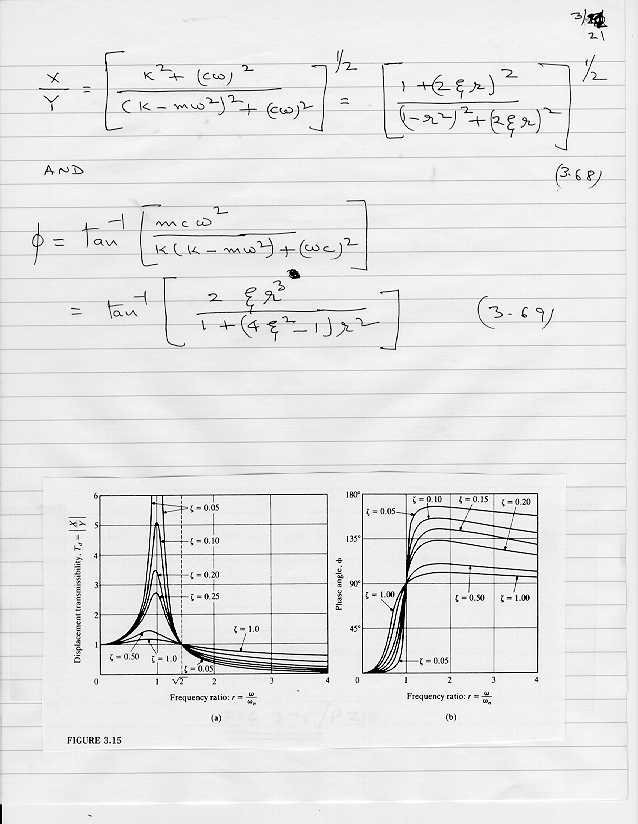 3/
21
X/Y = [ (K² + (cω)²) / ((K - mω²)² + (cω)²) ]^1/2 = [ (1 + (2ξr)²) / ((1-r²)² + (2ξr)²) ]^1/2
AND (3.68)
φ = tan⁻¹ [ mcω² / (K(K - mω²) + (ωc)²) ]
= tan⁻¹ [ 2ξr³ / (1 + (4ξ² - 1)r²) ] (3-69)
Displacement transmissibility, T_d = |X/Y|
6
5
4
3
2
1
0
1
√2
2
3
4
ζ = 0.05
ζ = 0.10
ζ = 0.20
ζ = 0.25
ζ = 1.0
ζ = 0.50
ζ = 1.0
ζ = 0.05
Frequency ratio: r = ω/ω_n
(a)
Phase angle, φ
180°
135°
90°
45°
0
1
2
3
4
ζ = 0.05
ζ = 0.10
ζ = 0.15
ζ = 0.20
ζ = 1.00
ζ = 0.50
ζ = 1.00
ζ = 0.05
Frequency ratio: r = ω/ω_n
(b)
FIGURE 3.15